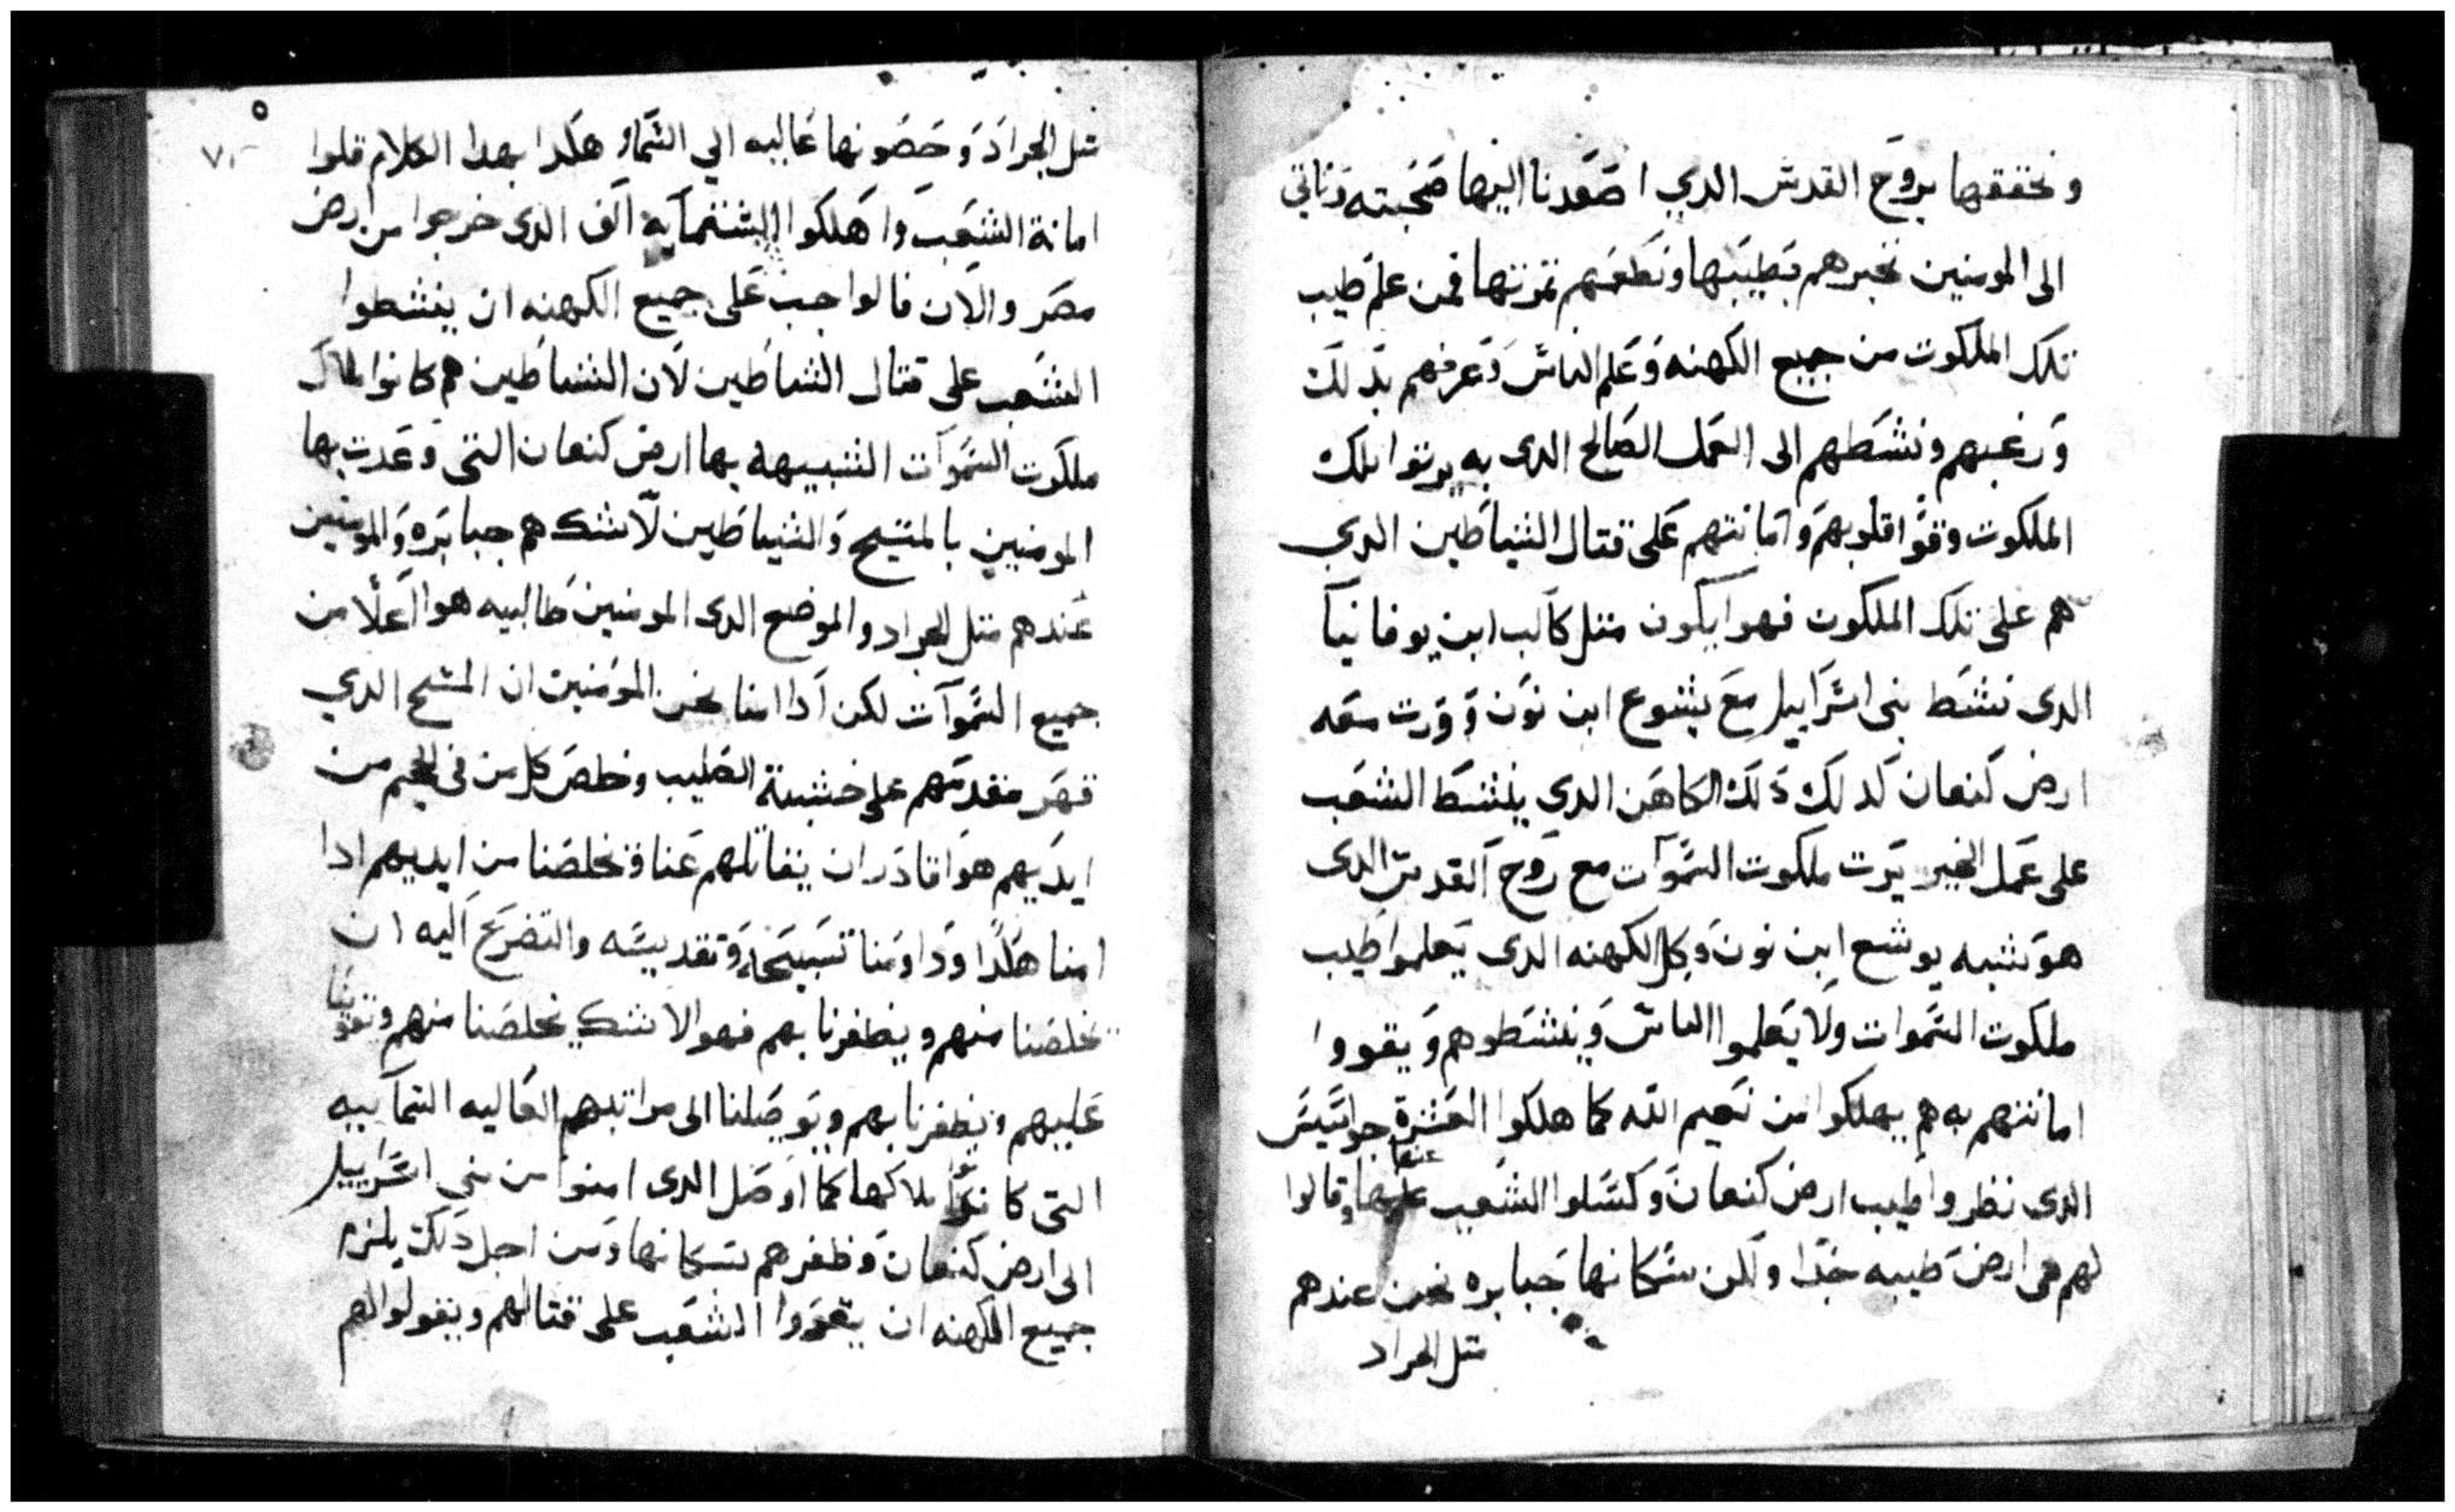 ونحققها بروح القدس الدي اصعدنا اليها صحبته وناتي
الى المومنين نخبرهم بطيبها ونطعمهم تمرتها فمن علم طيب
تلك الملكوت من جميع الكهنه وعلم الناس وعرفهم بدلك
ورغبهم ونشطهم الى العمل الصالح الدى به يرتوا تلك
الملكوت وقوا قلوبهم وامانتهم على قتال الشياطين الدي
هم على تلك الملكوت فهوا يكون متل كالب ابن يوفانيا
الدى نشط بنى اسراييل مع يشوع ابن نون وورت معه
ارض كنعان كدلك دلك الكاهن الدى ينشط الشعب
على عمل الخير يرت ملكوت السموات مع روح القدس الدى
هو شبه يوشع ابن نون وكل الكهنه الدى يعلموا طيب
ملكوت السموات ولا يعلموا الناس وينشطوهم ويقووا
امانتهم به هم يهلكوا من نعيم الله كما هلكوا العشرة جواسيس
الدى نظروا طيب ارض كنعان وكسلوا الشعب عنها وقالوا
لهم هى ارض طيبه جدا ولكن سكانها جبابره نحن عندهم
متل الجراد
٥
٧٠
متل الجراد وحصونها عاليه الي السما وهكدا بهدا الكلام قلوا
امانة الشعب واهلكوا الستماية الف الدى خرجوا من ارض
مصر والان فالواجب على جميع الكهنه ان ينشطوا
الشعب على قتال الشياطين لان الشياطين هم كانوا ملاك
ملكوت السموات الشبيهه بها ارض كنعان التى وعدت بها
المومنين بالمسيح والشياطين لا شك هم جبابره والمومنين
عندهم متل الجراد والموضع الدى المومنين طالبيه هوا اعلا من
جميع السموات لكن ادا امنا نحن المومنين ان المسيح الدي
قهر مقدمهم على خشبة الصليب وخلص كل من فى الجحيم من
ايديهم هوا قادر ان يقاتلهم عنا ويخلصنا من ايديهم ادا
امنا هكدا وداومنا تسبيحه وتقديسه والتضرع اليه ان
يخلصنا منهم ويظفرنا بهم فهوا لا شك يخلصنا منهم ويقوينا
عليهم ويظفرنا بهم ويوصلنا الى مراتبهم العاليه السماييه
التى كانوا ملاكها كما اوصل الدى امنوا من بني اسراييل
الى ارض كنعان وظفرهم بسكانها ومن اجل دلك يلزم
جميع الكهنه ان يقووا الشعب على قتالهم ويقولوا لهم